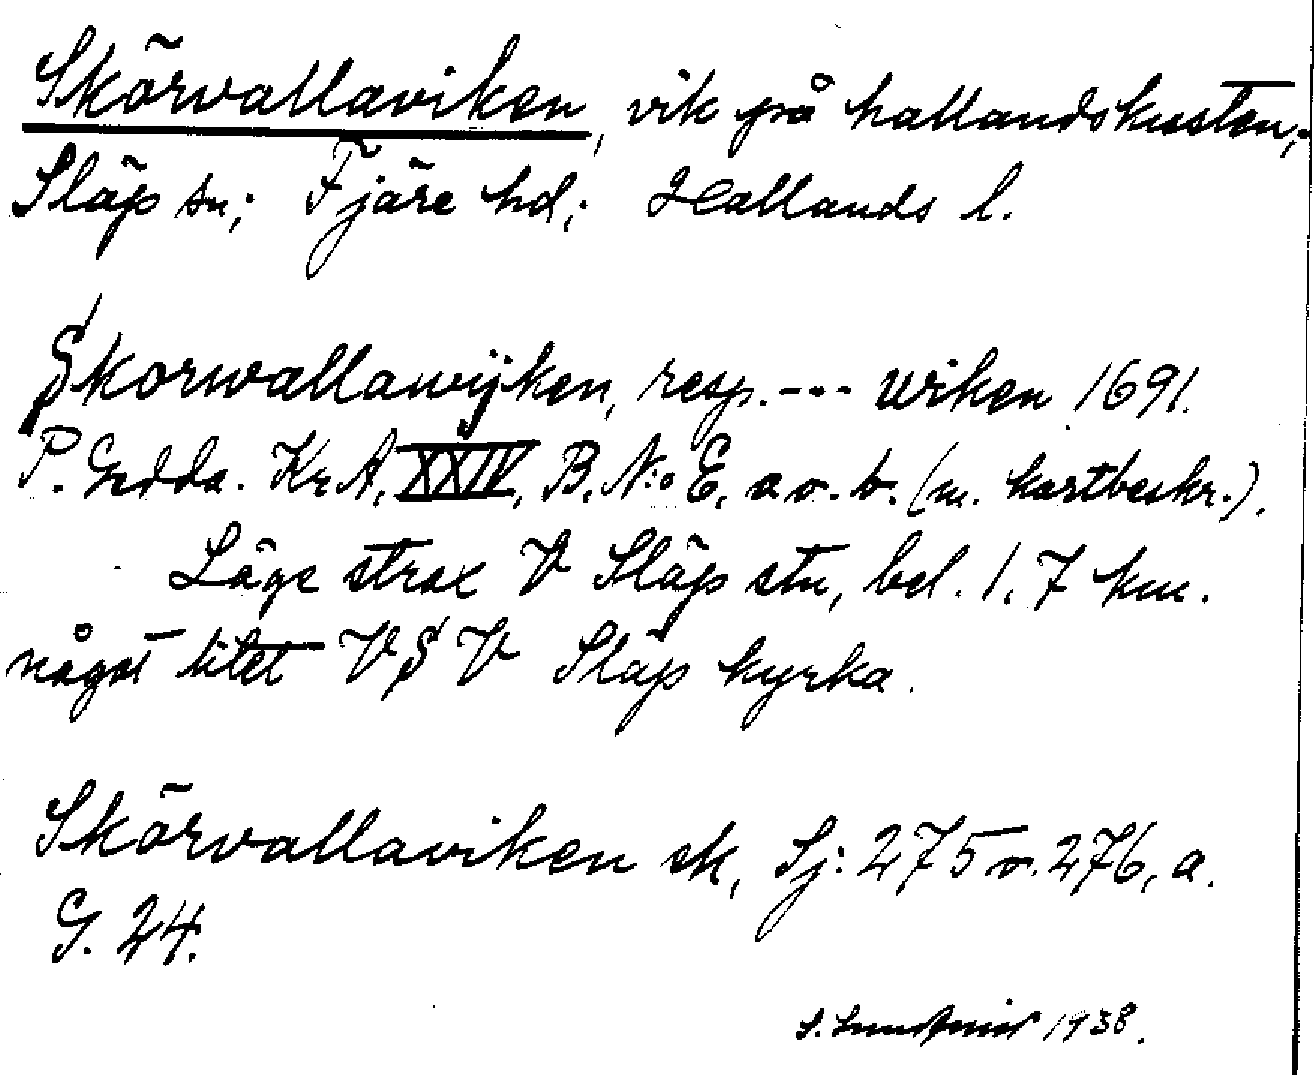 Skörvallaviken, vik på hallandskusten,
Släp sn; Fjäre hd; Hallands l.
Skorwallawijken, resp. --- wiken 1691.
P. Gedda. KrA, XXIV, B. N:o E, a o. b. (m. kartbeskr.).
Läge strax V Släp stn, bel. 1,7 km.
något litet VSV Släp kyrka.
Skörvallaviken sk, Sj: 275 o. 276, a.
G. 24.
S. 1938.